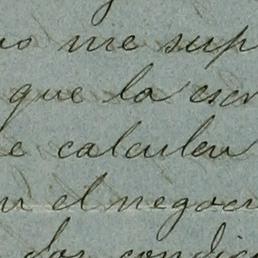 me sup
que la escr
e calculen
en el negoci
las condici